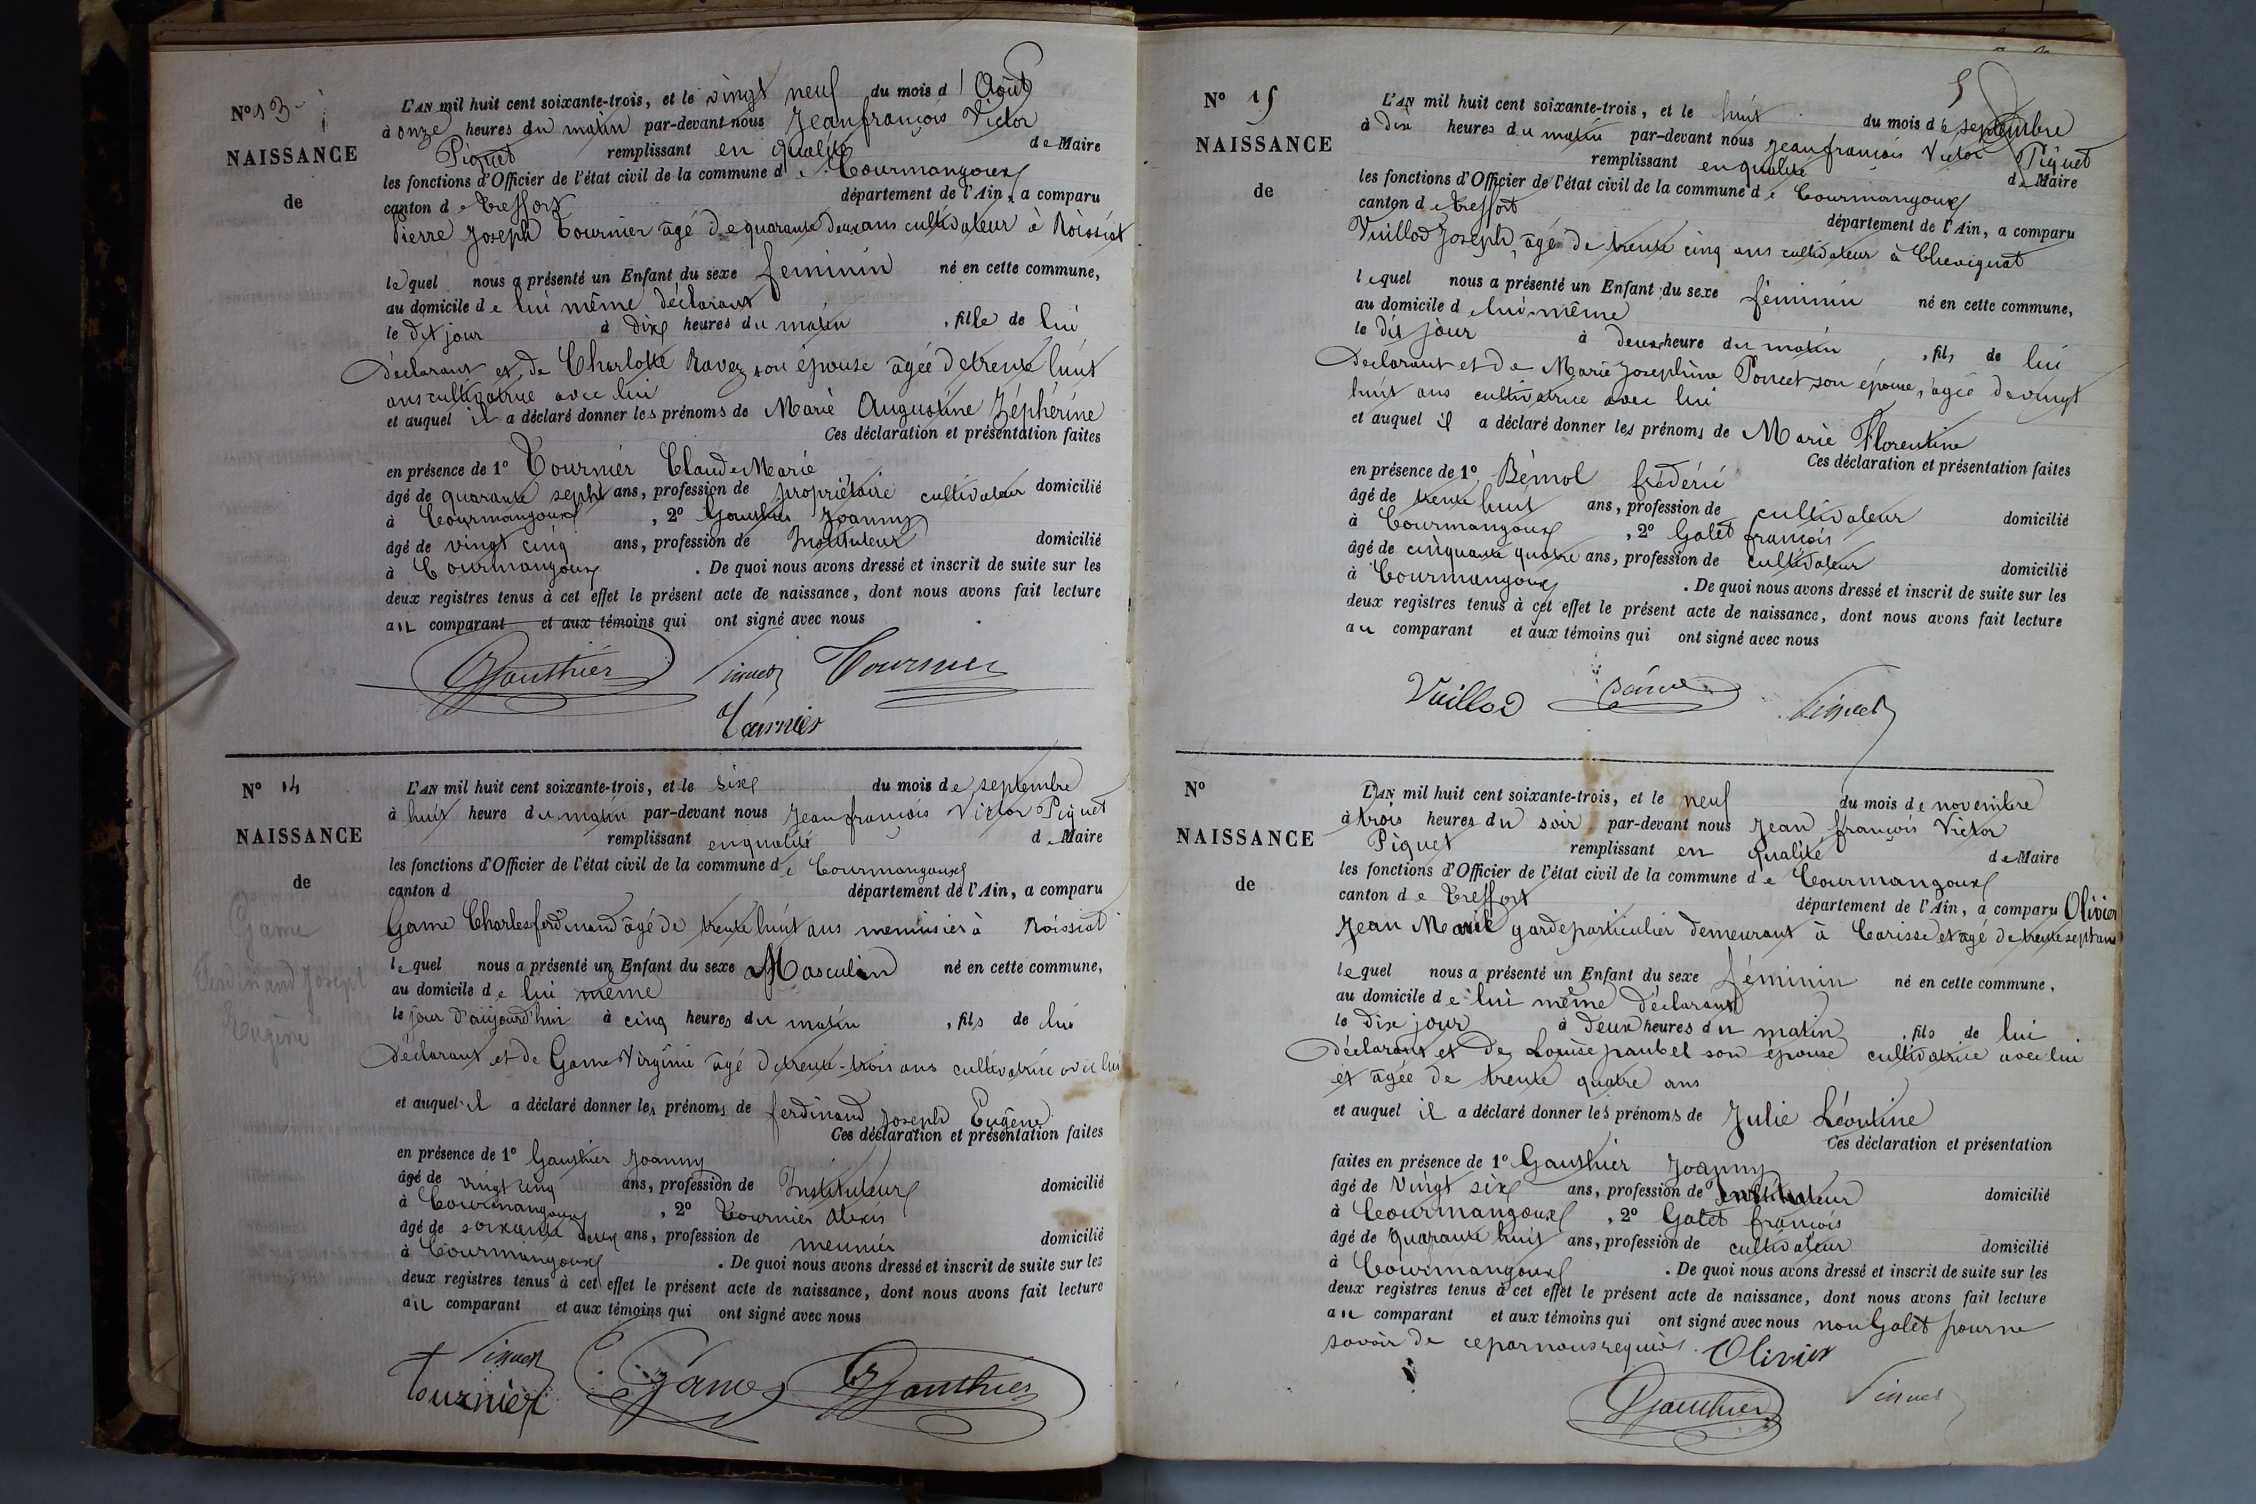 N° 13
NAISSANCE
de
L'AN mil huit cent soixante-trois, et le vingt neuf du mois d'Août
à onze heures du matin par-devant nous Jean françois Victor
Piquet remplissant en qualité de Maire
les fonctions d'Officier de l'état civil de la commune de Courmangoux
canton de Treffort département de l'Ain, a comparu
Pierre Joseph Tournier âgé de quarante deux ans cultivateur à Roissiat
lequel nous a présenté un Enfant du sexe feminin né en cette commune,
au domicile de lui même déclarant
le dit jour à dix heures du matin , fille de lui
déclarant et de Charlotte Ravez son épouse âgée de trente huit
ans cultivatrice avec lui
et auquel il a déclaré donner les prénoms de Marie Augustine Zéphérine
Ces déclaration et présentation faites
en présence de 1° Tournier Claude Marie
âgé de quarante sept ans, profession de propriétaire cultivateur domicilié
à Courmangoux , 2° Gauthier Joanny
âgé de vingt cinq ans, profession de Instituteur domicilié
à Courmangoux . De quoi nous avons dressé et inscrit de suite sur les
deux registres tenus à cet effet le présent acte de naissance, dont nous avons fait lecture
au comparant et aux témoins qui ont signé avec nous
Gauthier Piquet Tournier
Tournier
N° 14
NAISSANCE
de
Game
Ferdinand Joseph
Eugène
L'AN mil huit cent soixante-trois, et le six du mois de septembre
à huit heure du matin par-devant nous Jean françois Victor Piquet
remplissant en qualité de Maire
les fonctions d'Officier de l'état civil de la commune de Courmangoux
canton d département de l'Ain, a comparu
Game Charles ferdinand âgé de trente huit ans menuisier à Roissiat
lequel nous a présenté un Enfant du sexe Masculin né en cette commune,
au domicile de lui même
le jour d'aujourd'hui à cinq heures du matin , fils de lui
déclarant et de Game Virginie âgé de trente-trois ans cultivatrice avec lui
et auquel il a déclaré donner les prénoms de ferdinand Joseph Eugène
Ces déclaration et présentation faites
en présence de 1° Gauthier Joanny
âgé de vingt cinq ans, profession de Instituteur domicilié
à Courmangoux , 2° Tournier Alexis
âgé de soixante deux ans, profession de meunier domicilié
à Courmangoux . De quoi nous avons dressé et inscrit de suite sur les
deux registres tenus à cet effet le présent acte de naissance, dont nous avons fait lecture
au comparant et aux témoins qui ont signé avec nous
Piquet Game Gauthier
tournier
5
N° 15
NAISSANCE
de
L'AN mil huit cent soixante-trois, et le huit du mois de septembre
à dix heures du matin par-devant nous Jean françois Victor Piquet
remplissant en qualité de Maire
les fonctions d'Officier de l'état civil de la commune de Courmangoux
canton de treffort département de l'Ain, a comparu
Vuillod Joseph, âgé de trente cinq ans cultivateur à Chevignat
lequel nous a présenté un Enfant du sexe féminin né en cette commune,
au domicile de lui-même
le dit jour à deux heure du matin , fils de lui
déclarant et de Marie Josephine Poncet son épouse, âgée de vingt
huit ans cultivatrice avec lui
et auquel il a déclaré donner les prénoms de Marie Florentine
Ces déclaration et présentation faites
en présence de 1° Bémol frédéric
âgé de trente huit ans, profession de cultivateur domicilié
à Courmangoux , 2° Galet françois
âgé de cinquante quatre ans, profession de cultivateur domicilié
à Courmangoux . De quoi nous avons dressé et inscrit de suite sur les
deux registres tenus à cet effet le présent acte de naissance, dont nous avons fait lecture
au comparant et aux témoins qui ont signé avec nous
Vuillod Piquet
N°
NAISSANCE
de
L'AN mil huit cent soixante-trois, et le neuf du mois de novembre
à trois heures du soir par-devant nous Jean françois Victor
Piquet remplissant en qualité de Maire
les fonctions d'Officier de l'état civil de la commune de Courmangoux
canton de Treffort département de l'Ain, a comparu Olivier
Jean Marie garde particulier demeurant à Carisse et âgé de trente sept ans
lequel nous a présenté un Enfant du sexe féminin né en cette commune,
au domicile de lui même déclarant
le dix jour à deux heures du matin , fils de lui
déclarant et de Louise paubel son épouse cultivatrice avec lui
et âgée de trente quatre ans
et auquel il a déclaré donner les prénoms de Julie Léontine
Ces déclaration et présentation
faites en présence de 1° Gauthier Joanny
âgé de Vingt six ans, profession de Instituteur domicilié
à Courmangoux , 2° Galet françois
âgé de quarante huit ans, profession de cultivateur domicilié
à Courmangoux . De quoi nous avons dressé et inscrit de suite sur les
deux registres tenus à cet effet le présent acte de naissance, dont nous avons fait lecture
au comparant et aux témoins qui ont signé avec nous non Galet pour ne
savoir de ce par nous requis. Olivier
Gauthier Piquet